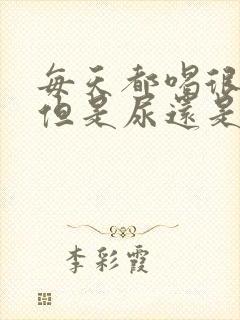 每天都喝很
但是尿還是
李彩霞